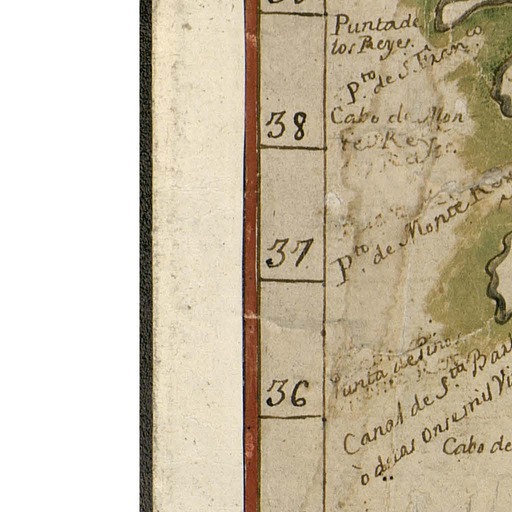 Punta de
los Reyes.
Pto. de S. Franco
38
Cabo de Mon
te Rey
37
Pto. de Monte Rey
Punta de Pinos
36
Canal de Sta Bar
ò de las Onse mil Vi
Cabo de